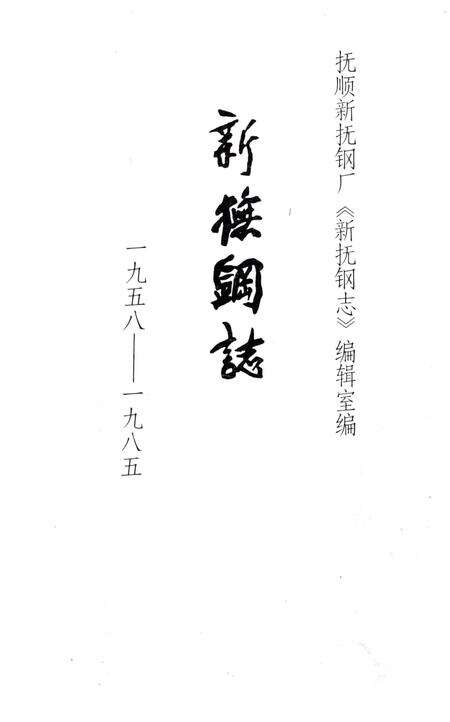 抚顺新抚钢厂《新抚钢志》编辑室编
新撫鋼誌
一九五八——一九八五